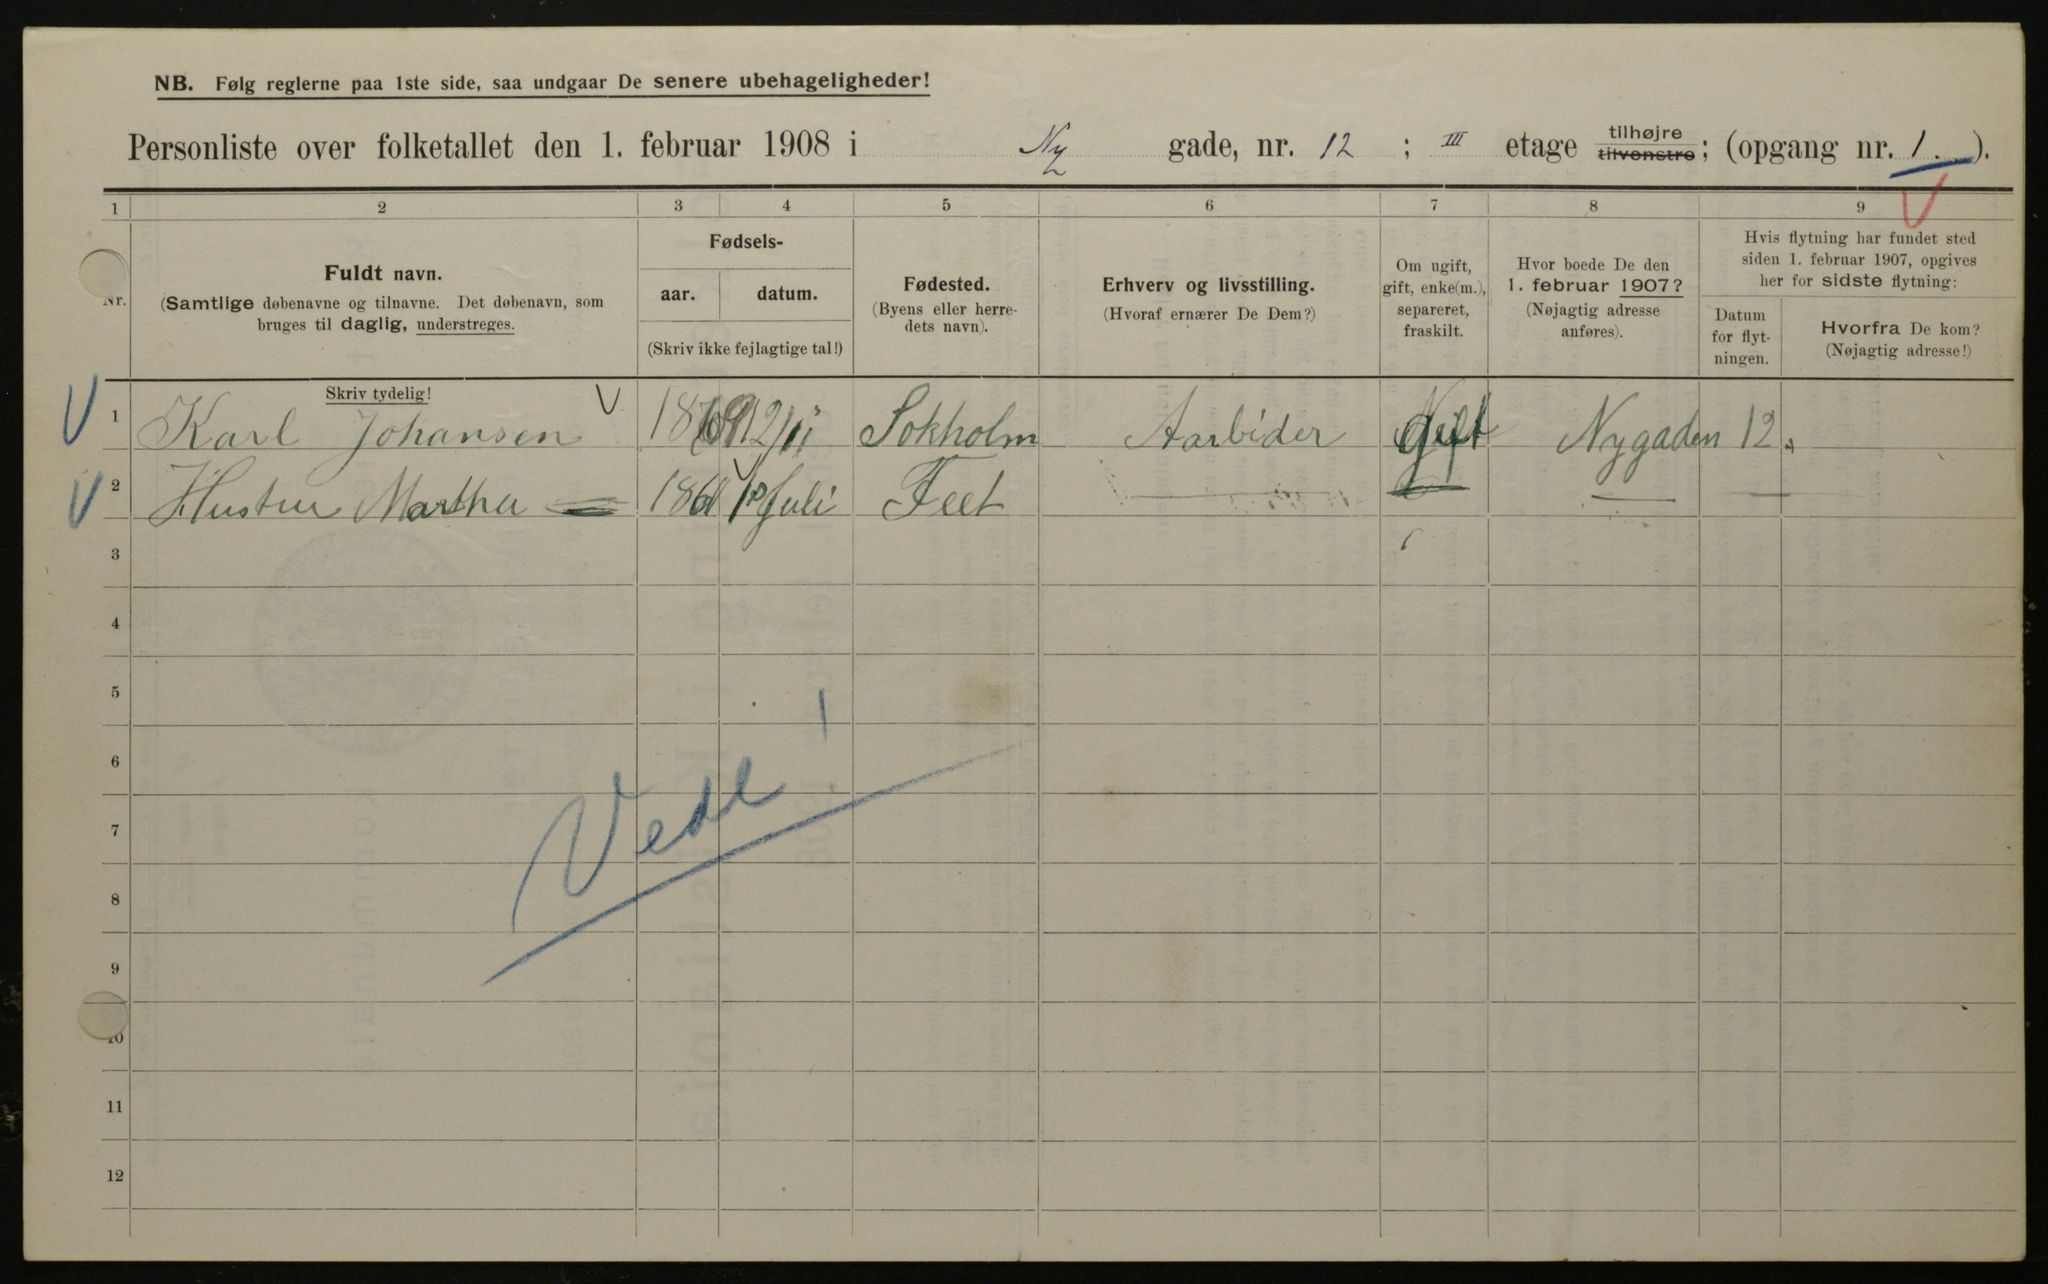 NB. Følg reglerne paa 1ste side, saa undgaar De senere ubehageligheder!
Personliste over folketallet den 1. februar 1908 i Ny gade, nr. 12 ; III etage tilhøjre tilvenstre; (opgang nr. 1. ).
1 2 3 4 5 6 7 8 9
Nr.
Fuldt navn.
(Samtlige døbenavne og tilnavne. Det døbenavn, som
bruges til daglig, understreges.
Skriv tydelig!
Fødsels-
aar. datum.
(Skriv ikke fejlagtige tal!)
Fødested.
(Byens eller herre-
dets navn).
Erhverv og livsstilling.
(Hvoraf ernærer De Dem?)
Om ugift,
gift, enke(m.),
separeret,
fraskilt.
Hvor boede De den
1. februar 1907?
(Nøjagtig adresse
anføres).
Hvis flytning har fundet sted
siden 1. februar 1907, opgives
her for sidste flytning:
Datum
for flyt-
ningen.
Hvorfra De kom?
(Nøjagtig adresse!)
1 Karl Johansen 1869 12/11 Sokholm Aarbider gift Nygaden 12.
2 Hustru Martha 1861 Juli Feet
3
4
5
6
7
8
9
10
11
12
Vedl!